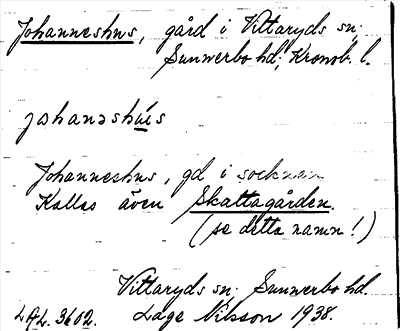 Johanneshus, gård i Vittaryds sn;
Sunnerbo hd; Kronob. l.
johanəshu̇s
Johanneshus, gd i socknen
Kallas även Skattagården.
(se detta namn!)
Vittaryds sn; Sunnerbo hd.
LAL. 3602. Lage Nilsson 1938.